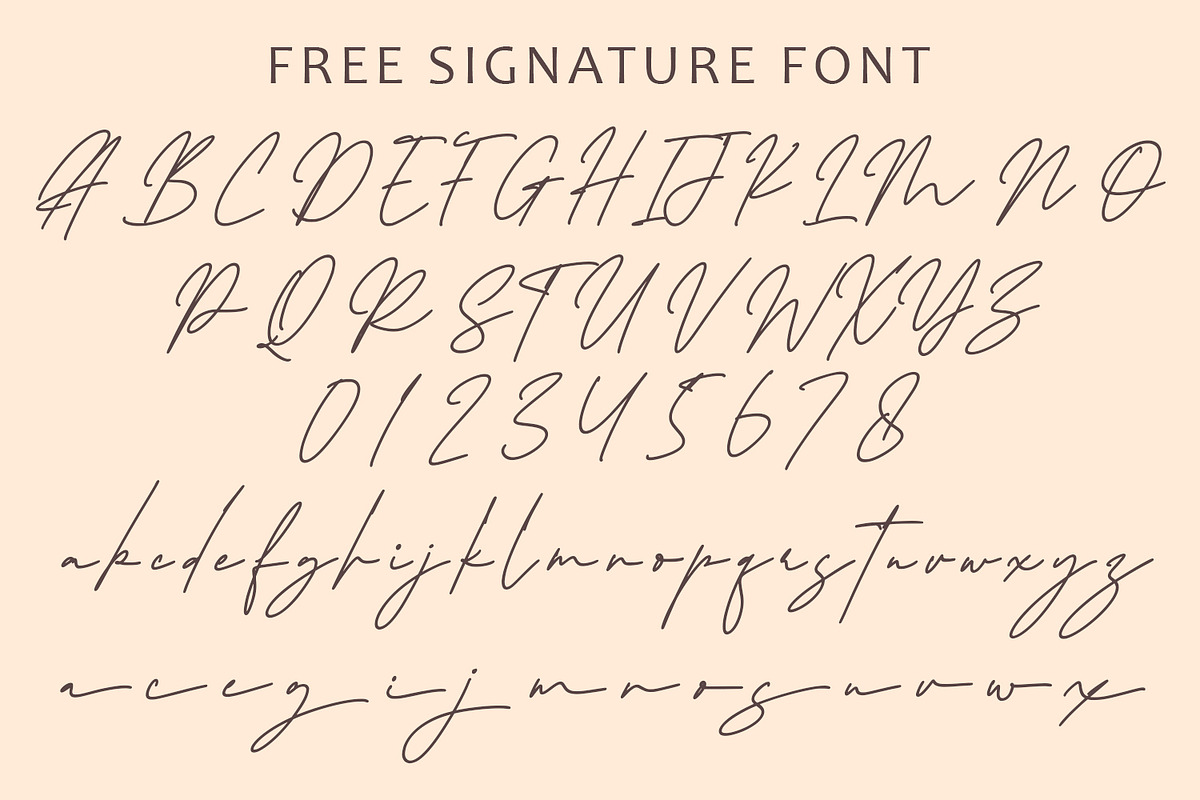 FREE SIGNATURE FONT
A B C D E F G H I J K L M N O
P Q R S T U V W X Y Z
0 1 2 3 4 5 6 7 8
a b c d e f g h i j k l m n o p q r s t u v w x y z
a c e g i j m n o s u v w x